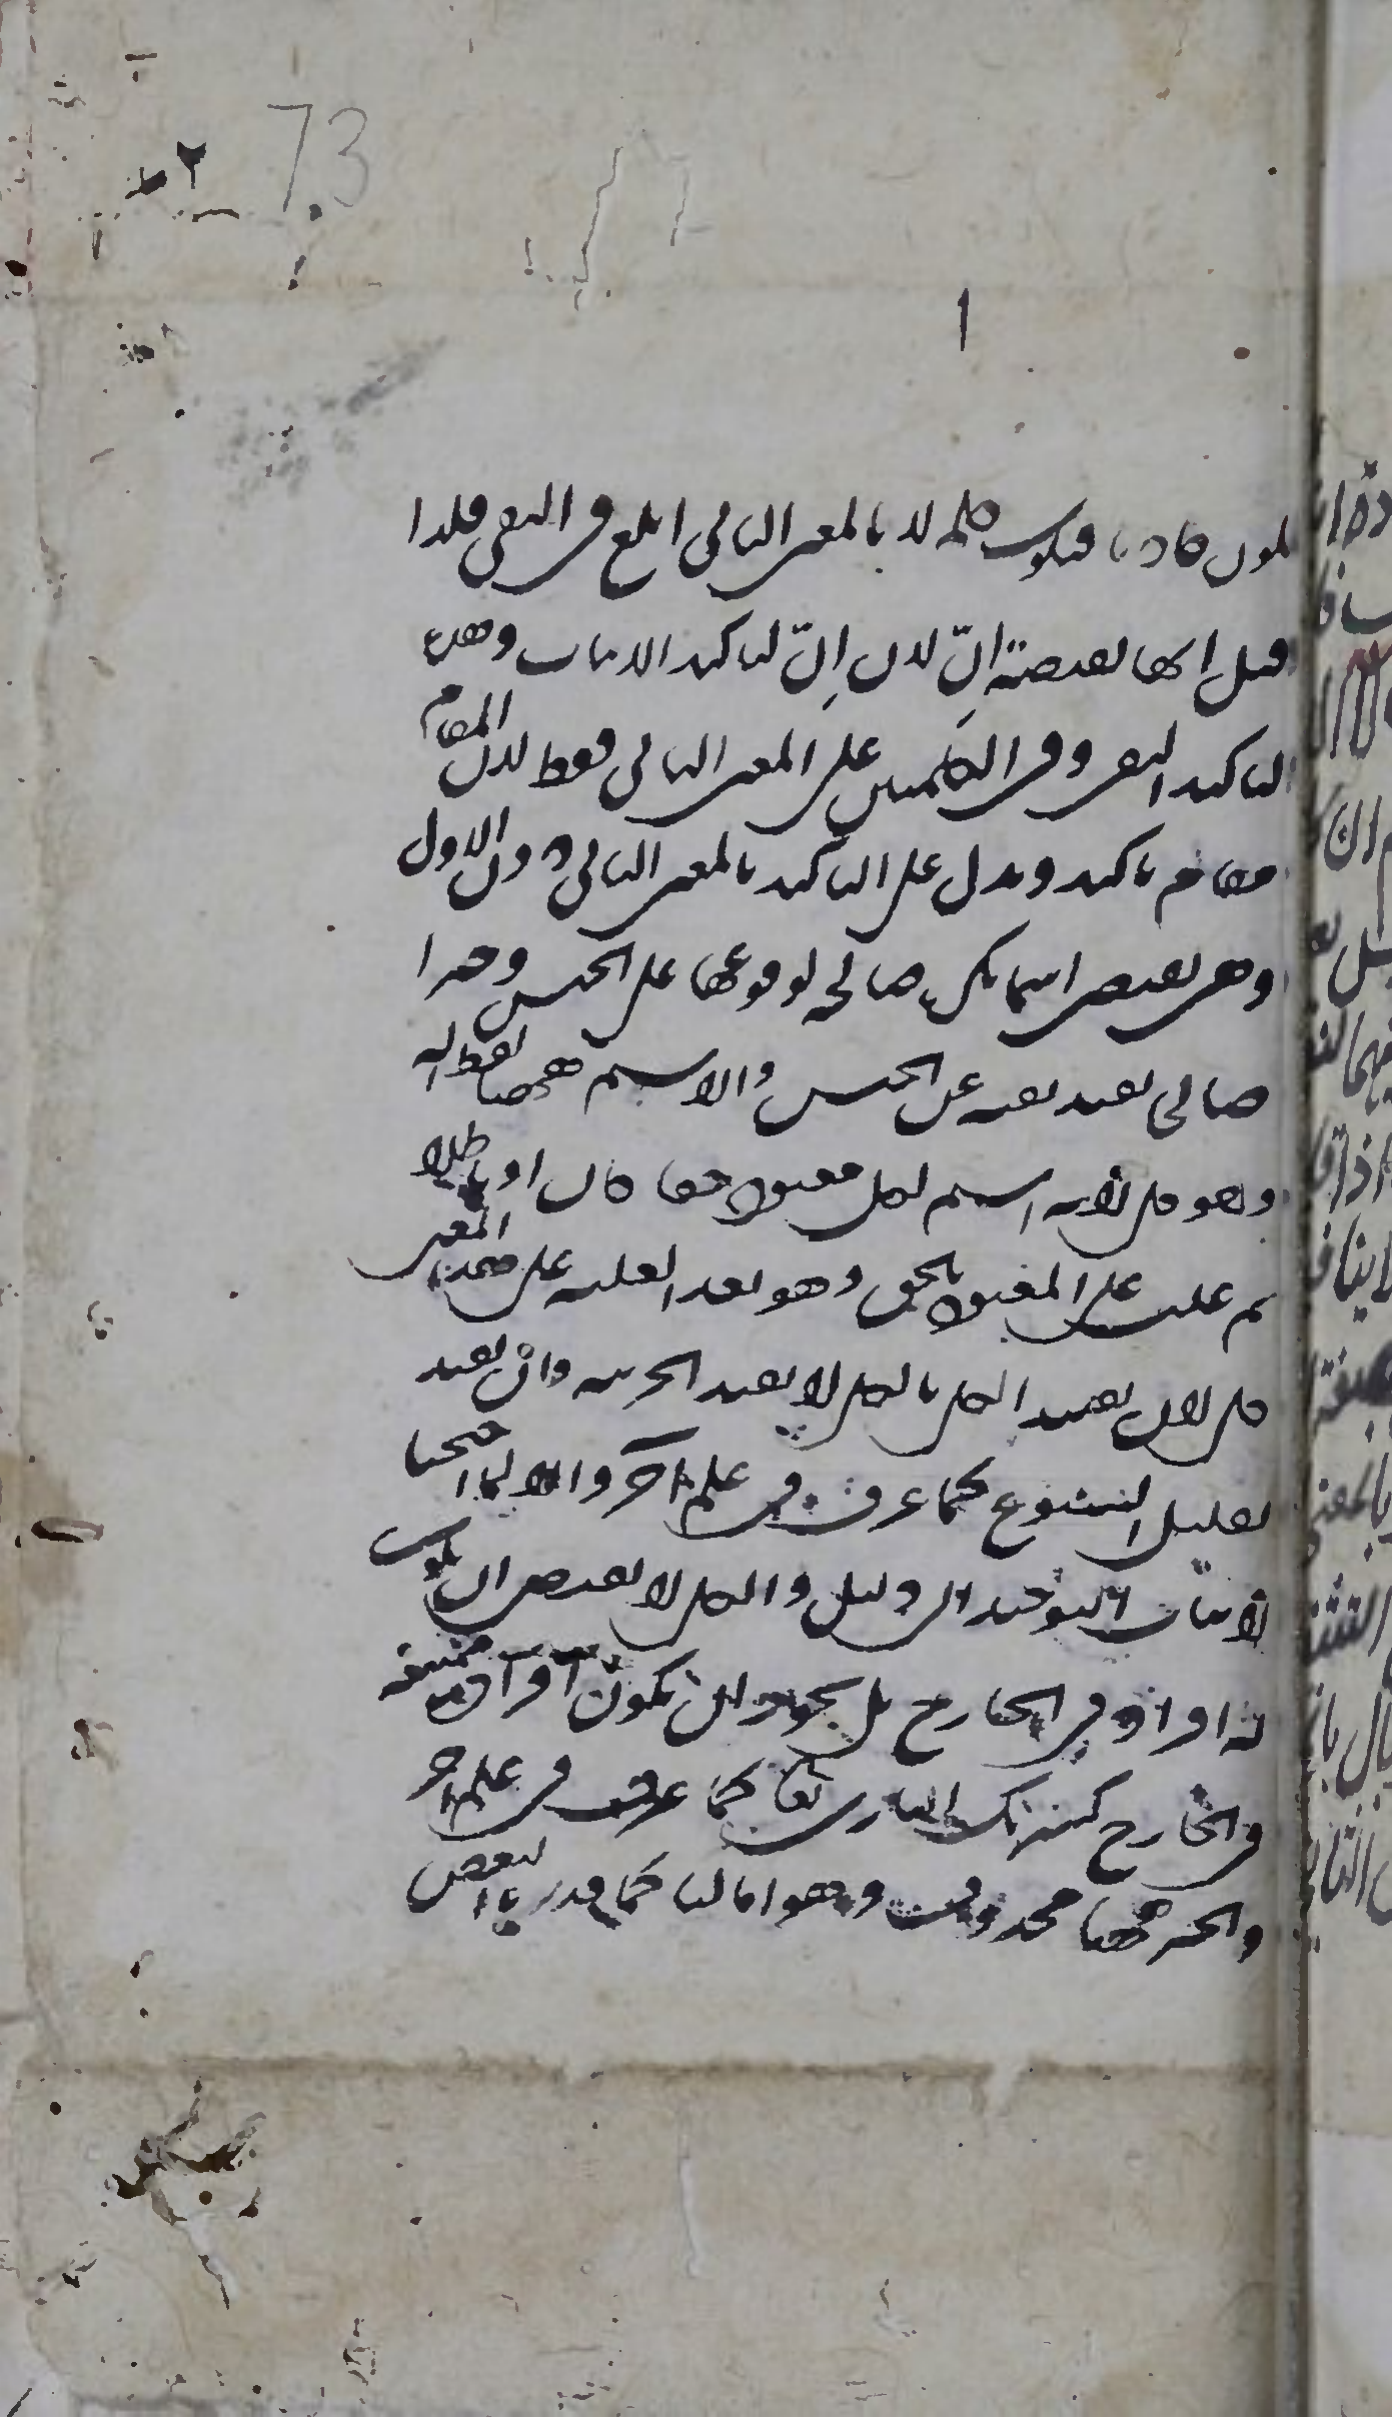 73
٢
١
يكون كاذبا فيكون كلمة لا بالمعنى الثاني ابلغ في النفي فلذا
قيل انها نقيضة إنّ لان إنّ لتاكيد الاثبات وهذه
لتاكيد النفي وفي الكلمتين على المعنى الثاني فقط لان المقام
مقام تاكيد ويدل على التاكيد بالمعنى الثاني دون الاول
وهي تقتضي اسما نكرة صالحة لوقوعها على الجنس وخبرا
صالحا يفيد نفيه عن الجنس والاسم ههنا لفظ اله
وهو كلي لانه اسم لكل معبود حقا كان او باطلا
ثم غلب على المعبود بالحق وهو بعد الغلبة على هذا المعنى
كلي لان تقييد الكلي بالكلي لا يفيد الجزئية وان يفيد
تقليل الشيوع كما عرف في علم آخر والا لما احتجنا
لاثبات التوحيد الى دليل والكلي لا يقتضي ان يكون
له افراد في الخارج بل يجوز ان يكون افراده ممتنعة
في الخارج كشريك الباري تعالى كما عرف في علم آخر
والخبر ههنا محذوف وهو اما لنا كما قدر بالبعض